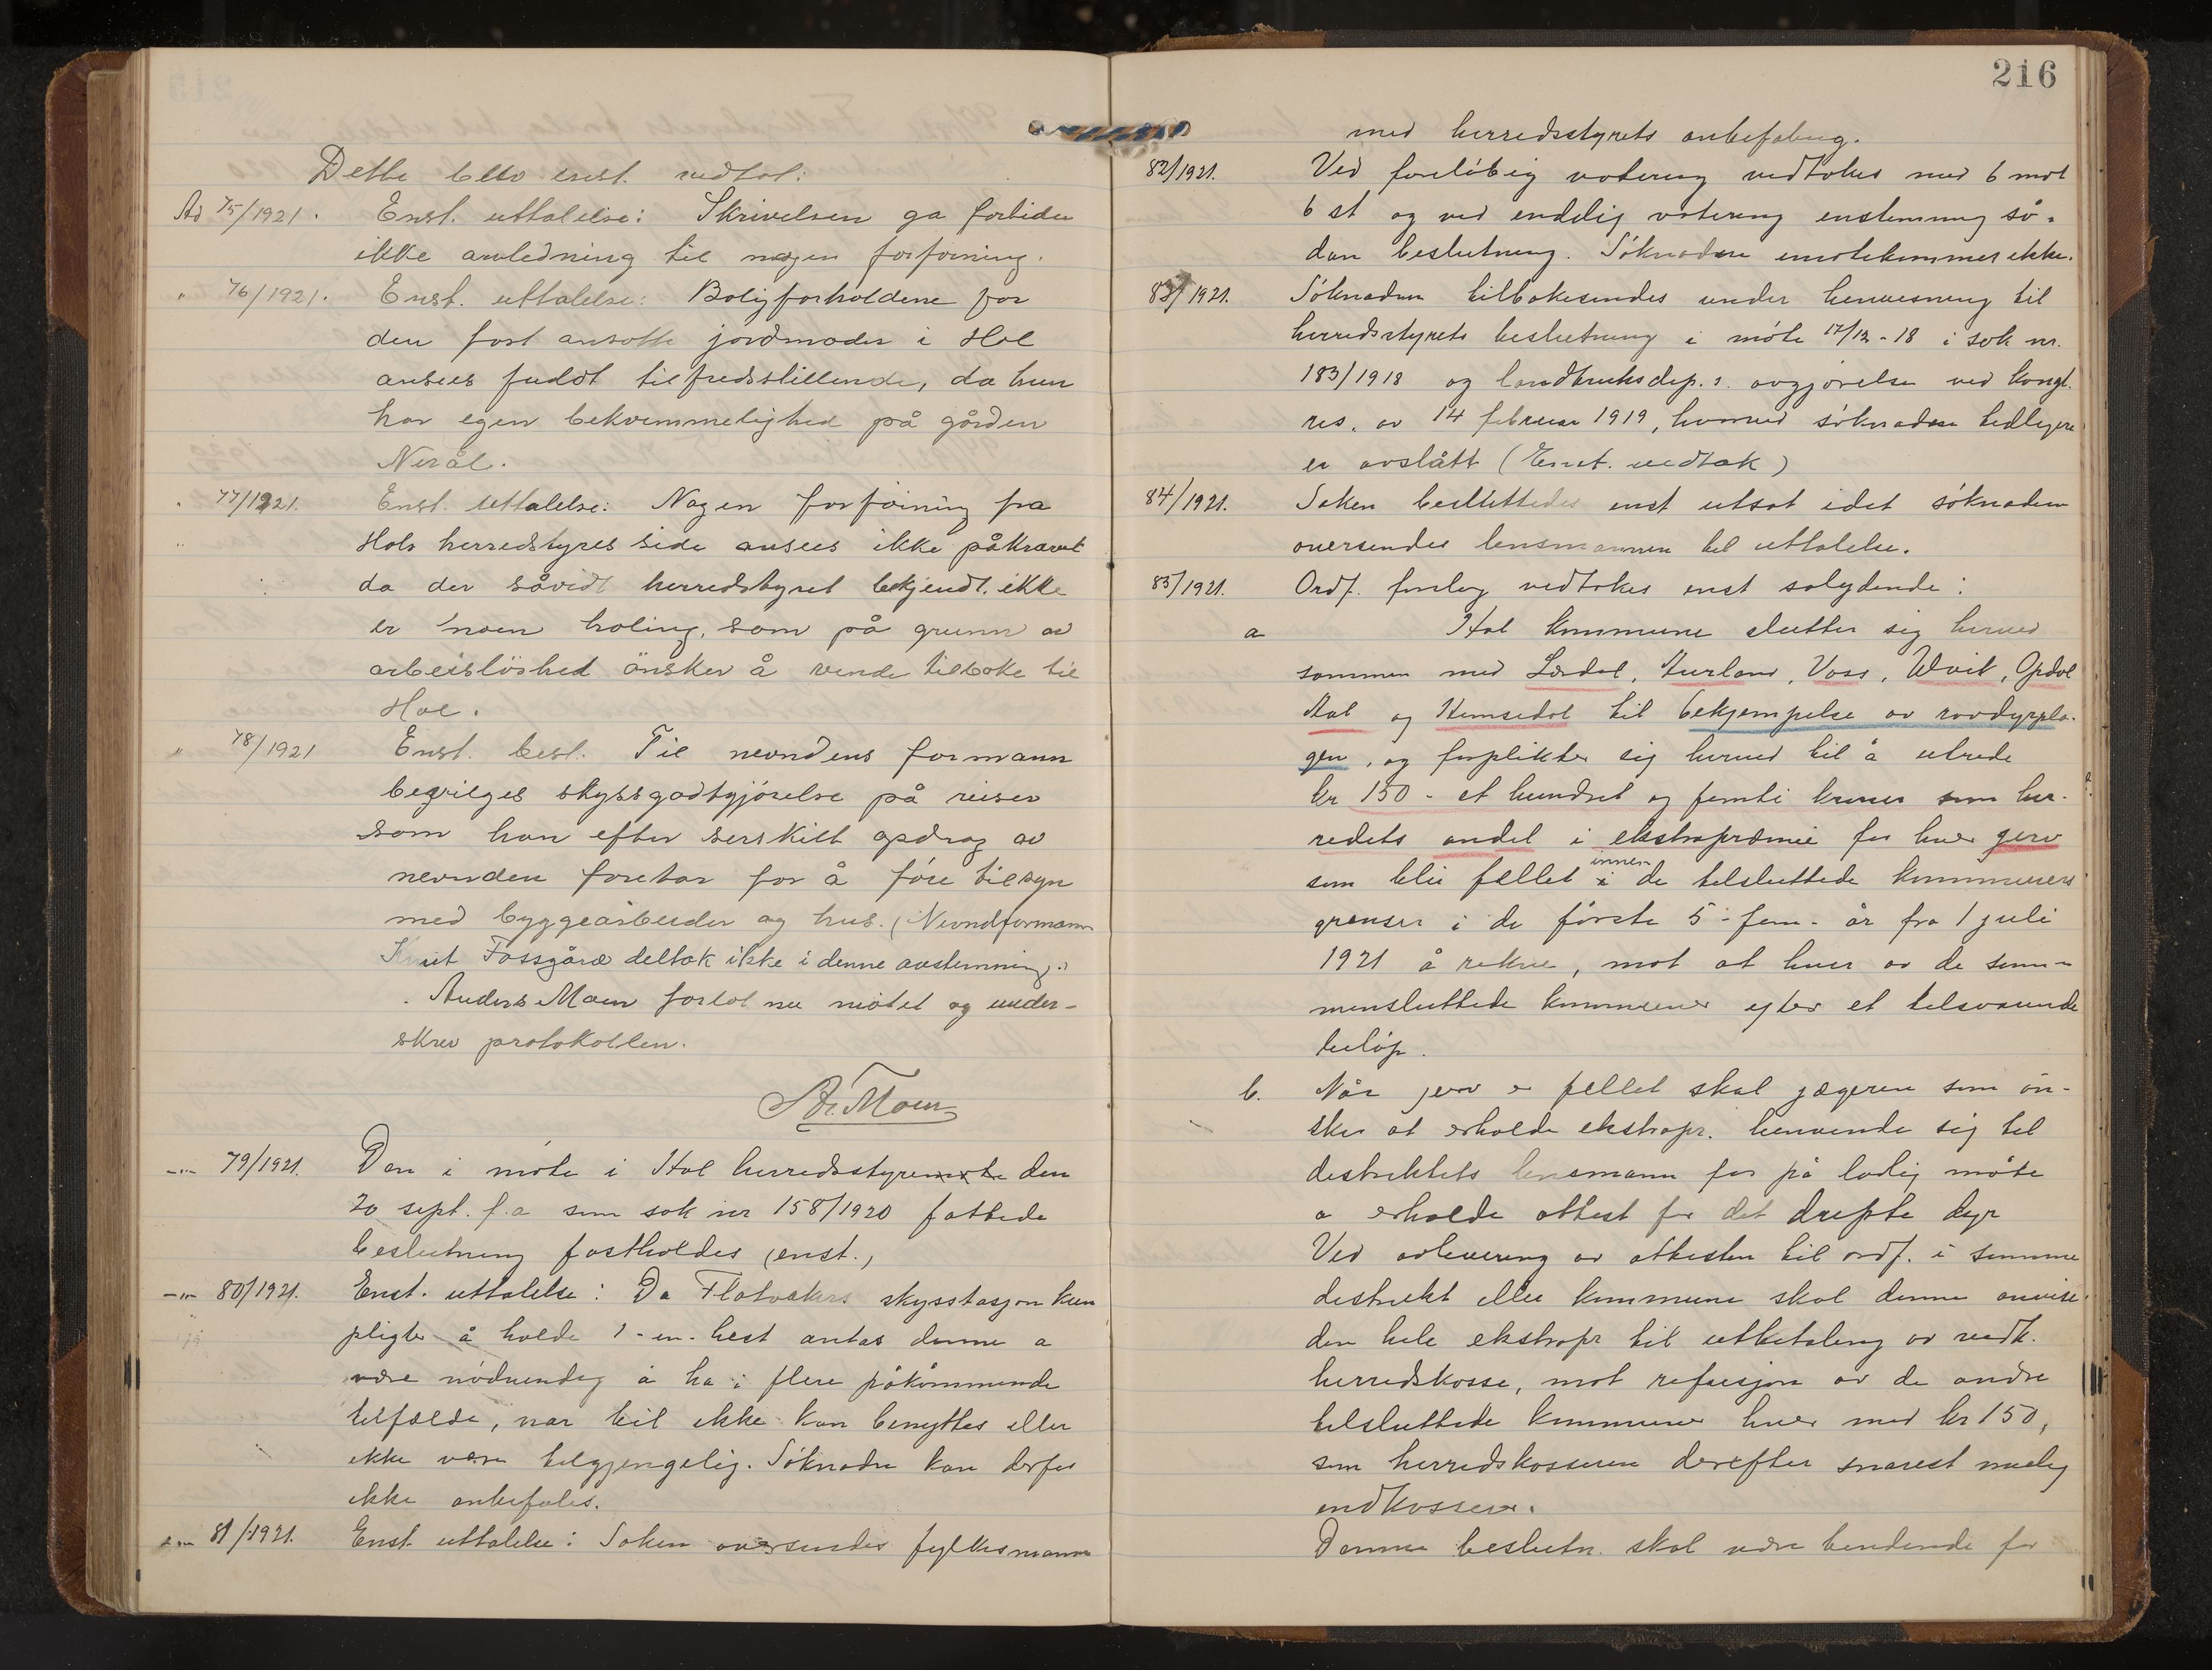 Dette blev enst. vedtat:
Ad 75/1921. Enst. uttalelse: Skrivelsen ga fortiden
ikke anledning til nogen forföining.
" 76/1921. Enst. uttalelse: Boligforholdene for
den fast ansatte jordmoder i Hol
ansees fuldt tilfredsstillende, da hun
har egen bekvemmelighed på gården
Nerål.
" 77/1921. Enst. uttalelse: Nogen forföining fra
Hols herredstyres side ansees ikke påkrævet
da der såvidt herredstyret bekjendt. ikke
er noen holing, som på grunn av
arbeislöshed önsker å vende tilbake til
Hol.
" 78/1921 Enst. besl. Til nevndens formann
bevilges skyssgodtgjörelse på reiser
som han efter serskilt opdrag av
nevnden foretar for å före tilsyn
med byggearbeider og hus. (Nevndformann
Knut Fossgård deltok ikke i denne avstemning.)
Anders Moen forlot nu mötet og under-
skrev protokollen.
A. Moen
-"- 79/1921. Den i möte i Hol herredsstyremöte den
20 sept. f.a som sak nr 158/1920 fattede
beslutning fastholdes (enst.)
-"- 80/1921. Enst. uttalelse: Da Flatvakers skysstasjon kun
pligter å holde 1 - en - hest antas denne a
være nödvendig å ha i flere påkommende
tilfælde, nar bil ikke kan benyttes eller
ikke være tilgjengelig. Söknaden kan derfor
ikke anbefales.
-"- 81/1921. Enst uttalelse: Saken oversendes fylkesmannen
216
med herredsstyrets anbefaling.
82/1921. Ved foreløbig votering vedtokes med 6 mot
6 st og ved endelig votering enstemmig så-
dan beslutning. Söknaden imötekommes ikke.
83/1921. Söknaden tilbakesendes under henvisning til
herredsstyrets beslutning i möte 17/12-18 i sak nr.
183/1918 og landbruksdep.s. avgjörelse ved kongl.
res. av 14 februar 1919, hvorved söknaden tidligere
er avslått (Enst. vedtak)
84/1921. Saken besluttedes enst utsat idet söknaden
oversendes lensmannen til uttalelse.
85/1921. Ordf. forslag vedtokes enst sålydende:
a Hol kommune slutter sig herved
sammen med Lærdal, Aurland, Voss, Ulvik, Opdal
Aal og Hemsedal til bekjempelse av rovdyrpla-
gen, og forplikter sig herved til å utrede
kr 150 - et hundret og femti kroner som her-
redets andel i ekstrapræmie for hver gerv
som blir fellet innen i de tilsluttede kommuners
grænser i de förste 5 - fem - år fra 1 juli
1921 å rekne, mot at hver av de sam-
mensluttede kommuner yter et tilsvarende
belöp.
b. Når jerv er fellet skal jægeren som ön-
sker at erholde ekstrapr. henvende sig til
distriktets lensmann for på lovlig måte
a erholde attest for det drepte dyr
Ved avlevering av attesten til ordf. i samme
distrikt eller kommune skal denne anvise
den hele ekstrapr til utbetaling av vedk.
herredskasse, mot refusjon av de andre
tilsluttede kommuner hver med kr 150,
som herredskasseren derefter snarest mulig
indkasserer.
Denne beslutn. skal være bindende for